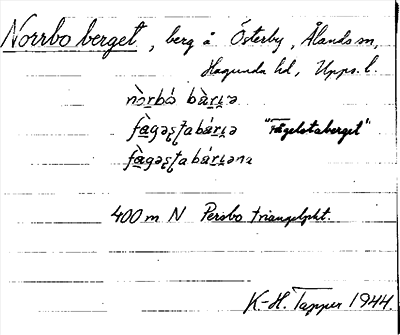 Norrbo berget, berg å Österby, Ålands sn,
Hagunda hd, Upps. l.
nɔ̀rbó bàrɪ̯ə
fàgəʂʈabárɪ̯ə "Fågelstaberget"
fàgəʂʈabárɪ̯əna
400 m N Persbo triangelpkt.
K-H. Tapper 1944.